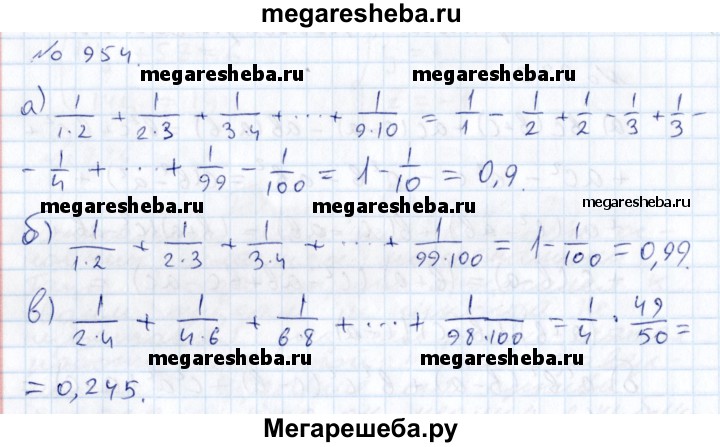 megaresheba.ru
№ 954.
megaresheba.ru megaresheba.ru
а) 1/(1·2) + 1/(2·3) + 1/(3·4) + ... + 1/(9·10) = 1/1 - 1/2 + 1/2 - 1/3 + 1/3 -
- 1/4 + ... + 1/99 - 1/100 = 1 - 1/10 = 0,9.
megaresheba.ru megaresheba.ru megaresheba.ru
б) 1/(1·2) + 1/(2·3) + 1/(3·4) + ... + 1/(99·100) = 1 - 1/100 = 0,99.
в) 1/(2·4) + 1/(4·6) + 1/(6·8) + ... + 1/(98·100) = 1/4 · 49/50 =
megaresheba.ru megaresheba.ru
= 0,245.
Мегарешеба.ру